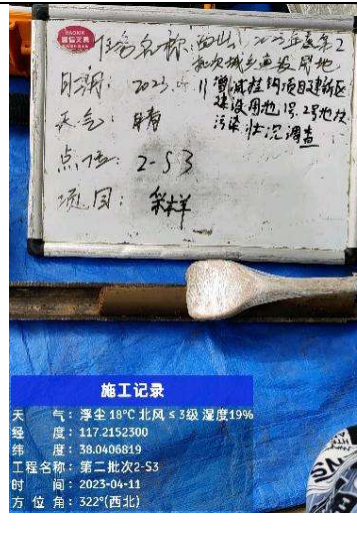 任务名称:
日期: 2023.4.11
批次城乡建设用地
增减挂钩项目建新区
建设用地1号、2号地块
天气: 晴
污染状况调查
点位: 2-S3
项目: 采样
施工记录
天 气: 浮尘 18℃ 北风 ≤ 3级 湿度19%
经 度: 117.2152300
纬 度: 38.0406819
工程名称: 第二批次2-S3
时 间: 2023-04-11
方 位 角: 322°(西北)